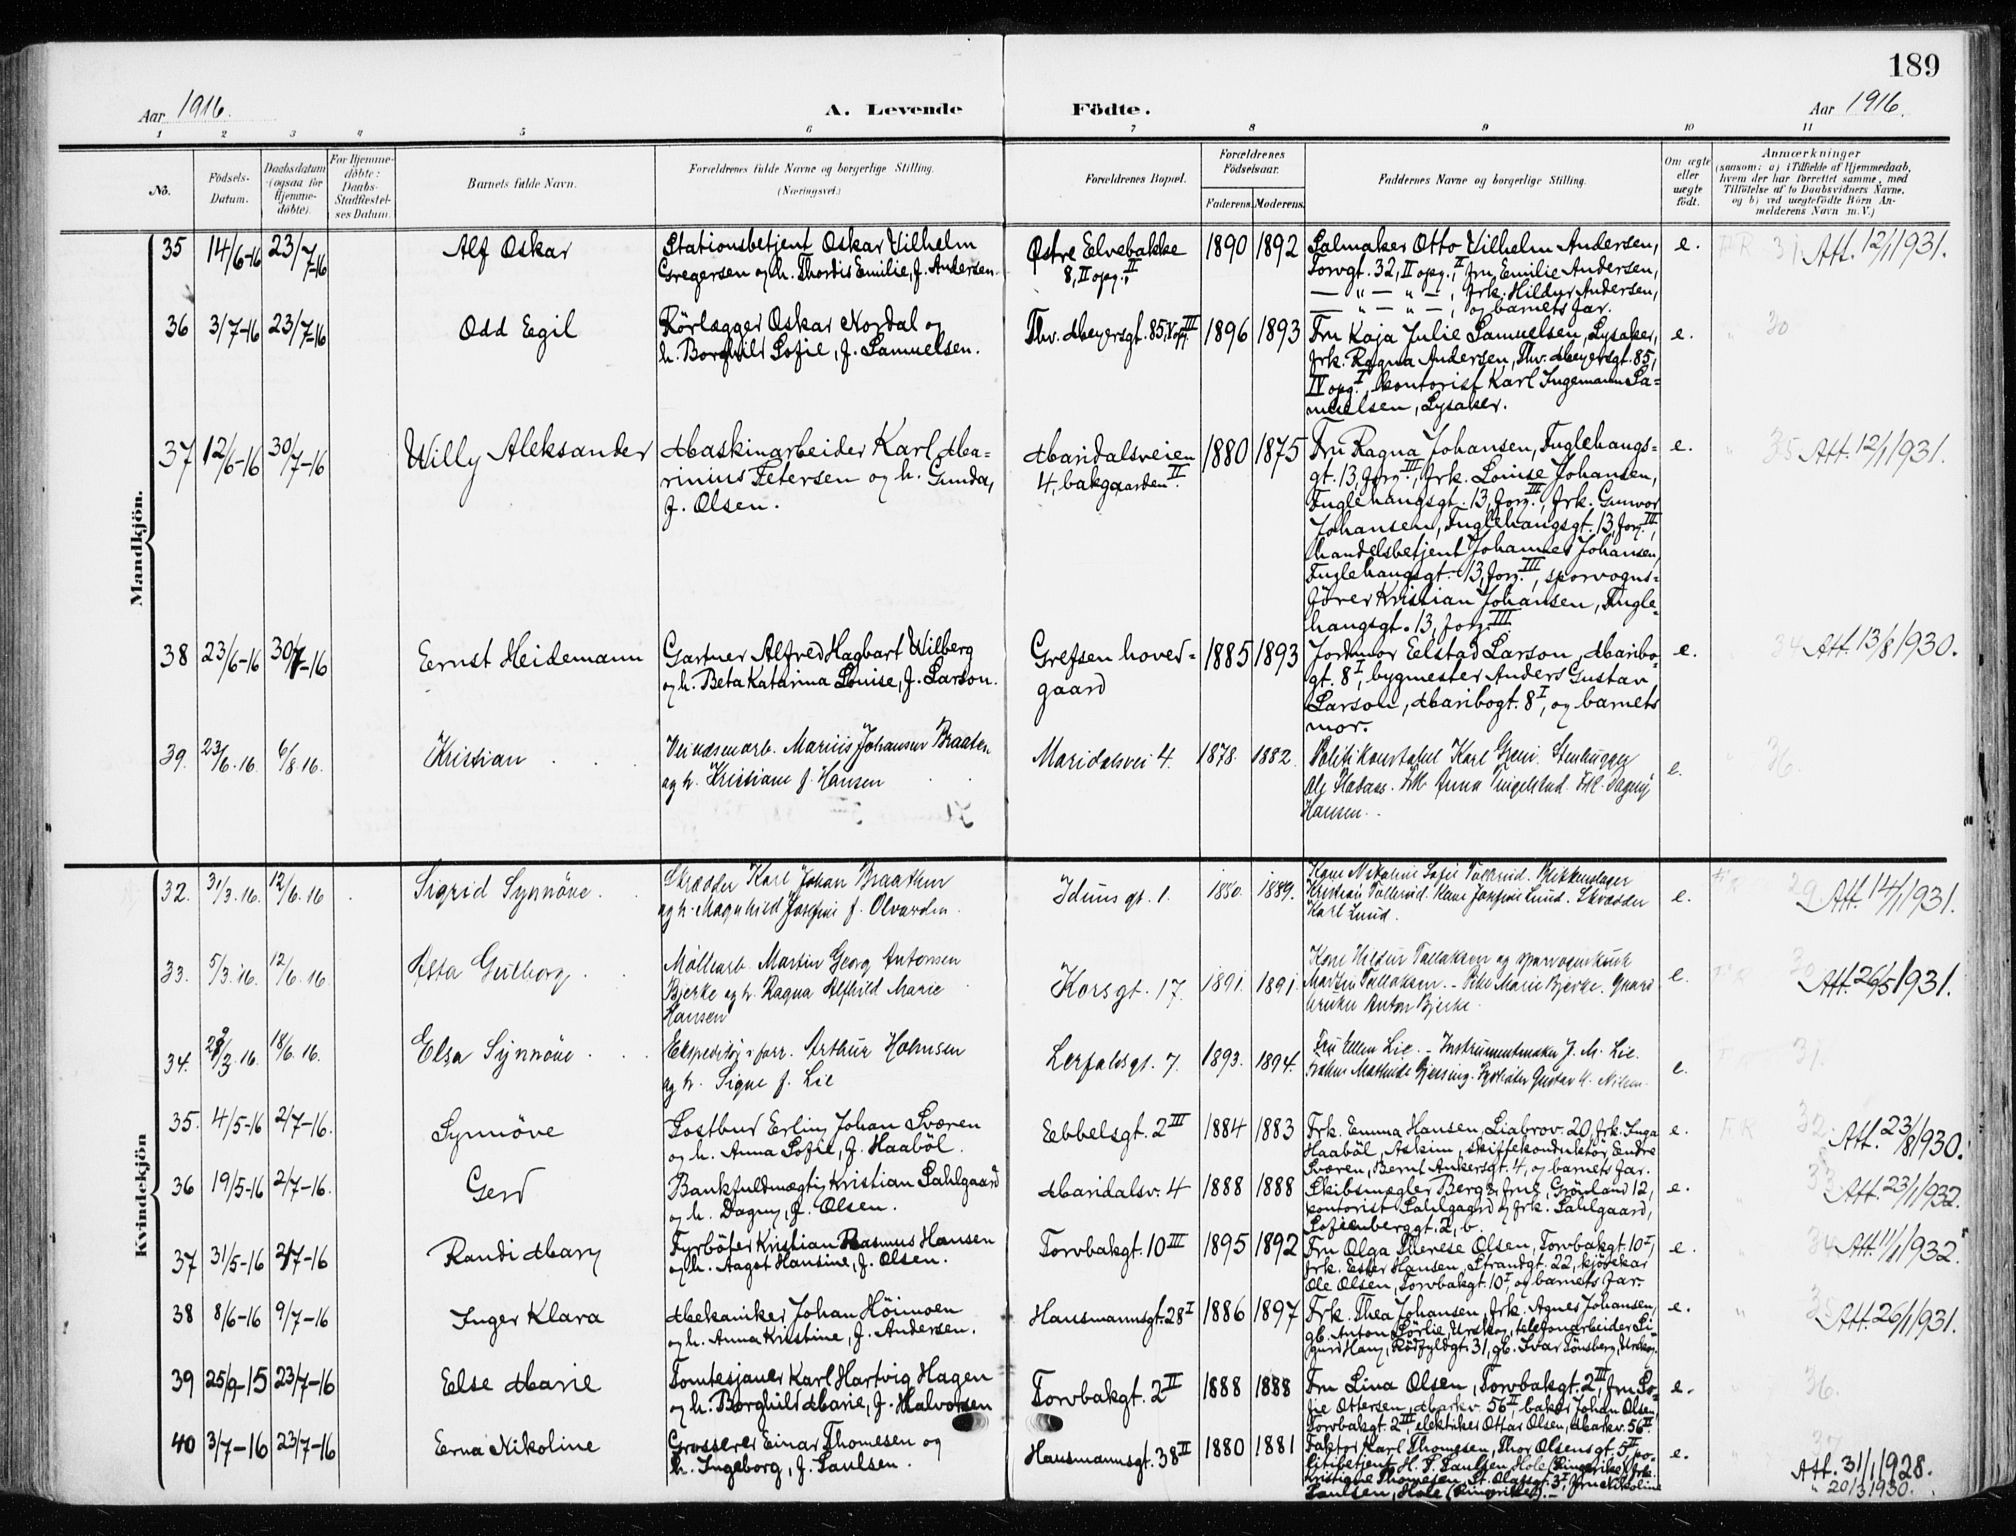 189
Aar 1916. A. Levende Födte. Aar 1916.
1 2 3 4 5 6 7 8 9 10 11
No. Födsels-Datum. Daabsdatum (ogsaa for Hjemmedöbte). For Hjemmedöbte: Daabs-Stadfæstelses Datum. Barnets fulde Navn. Forældrenes fulde Navne og borgerlige Stilling. (Næringsvei.) Forældrenes Bopæl. Forældrenes Födselsaar. Faderens. Moderens. Faddernes Navne og borgerlige Stilling. Om ægte eller uægte födt. Anmærkninger (saasom: a) i Tilfælde af Hjemmedaab, hvem der har forrettet samme, med Tilföielse af to Daabsvidners Navne, og b) ved uægtefödte Börn Anmelderens Navn m. V.)
Mandkjön.
35 14/6-16 23/7-16 Alf Oskar Stationsbetjent Oskar Vilhelm Østre Elvebakke 1890 1892 Salmaker Otto Vilhelm Andersen, e. 31. Att. 12/1 1931.
Gregersen og h. Thordis Emilie, f. Andersen. 8, II opg., II Torvgt. 32, II opg., I, fru Emilie Andersen,
— " — " — , frk. Hildur Andersen,
— " — " — , og barnets far.
36 3/7-16 23/7-16 Odd Egil Rörlægger Oskar Nordal og Thv. Meyersgt. 85, V opg. III 1896 1893 Fru Kaja Julie Samuelsen, Lysaker, e. " 30
h. Borghild Sofie, f. Samuelsen. frk. Ragna Andersen, Thv. Meyersgt. 85,
IV opg. I, kontorist Karl Ingemann Sa-
muelsen, Lysaker.
37 12/6-16 30/7-16 Willy Aleksander Maskinarbeider Karl Ma- Maridalsveien 1880 1875 Fru Ragna Johansen, Fuglehangs- e. " 35 Att. 12/1 1931.
rinius Petersen og h. Gunda, 4, bakgaarden II. gt. 13, forg. III, frk. Louise Johansen,
f. Olsen. Fuglehangsgt. 13, forg. III, frk. Gunvor
Johansen, Fuglehangsgt. 13, forg. III,
handelsbetjent Johannes Johansen,
Fuglehangsgt. 13, forg. III, sporvogns-
förer Kristian Johansen, Fugle-
hangsgt. 13, forg. III
38 23/6-16 30/7-16 Ernst Heidemann Gartner Alfred Hagbart Wilberg Grefsen hoved- 1885 1893 Jordmor Elstad Larson, Maribo- e. 34 Att. 13/8 1930.
og h. Beta Katarina Louise, f. Larson. gaard gt. 8 I, bygmester Anders Gustav
Larson, Maribogt. 8 I, og barnets
mor.
39. 23/6.16. 6/8.16. Kristian Marius Johansen Braaten Maridalsvei 4. 1878. 1882. Politikonstabel Karl Greni. Stenhugger e. " 36.
og h. Kristiane f. Hansen Frk. Anna Frk. Dagny
Hansen.
Kvindekjön
32. 31/3.16. 12/6.16 Sigrid Synnöve. Skrædder Karl Johan Braathen Iduns gt. 1. 1880. 1889. Kone Nikoline Sofie Tollerud. Blikkenslager e. 29 Att. 14/1 1931.
og h. Magnhild Josefine f. Kristian Tollerud. Kone Josefine Lund. Skrædder
Karl Lund.
33. 5/3.16. 12/6.16 Asta Gulborg. Möllearb. Martin Georg Antonsen Korsgt. 17. 1891. 1891 Kone Hildur Tallaksen og e. 30 Att. 26/5 1931.
Bjerke og h. Ragna Alfhild Marie Martin Tallaksen. Pike Marie Bjerke.
Hansen Anton Bjerke.
34. 29/3.16. 18/6.16. Elsa Synnöve Arthur Holmsen Lerfaldsgt. 7. 1893. 1894. Fru Ellen Lie. – Instrumentmaker J. M. Lie. e. 31.
og h. Signe f. Lie
35. 4/5-16 2/7-16. Synnöve Postbud Erling Johan Sværen Ebbelsgt. 2 III 1884 1883 Frk. Emma Hansen, Liabrov. 20, frk. Inga e. F.R. 32. Att. 23/8 1930.
og h. Anna Sofie, f. Haaböl. Haaböl, Askim, skiftekonduktör Endre
Sværen, Bernt Ankersgt. 4, og barnets far.
36 19/5-16 2/7-16. Gerd Bankfuldmægtig Kristian Sahlgaard Maridalsv. 4 1888 1888 Skibsmægler Berg & fru, Grönland 12, e. " 33. Att. 23/1 1932.
og h. Dagny, f. Olsen. kontorist Sahlgaard og frk. Sahlgaard,
Sofienberggt. 2, b.
37 31/5-16 2/7-16 Randi Mary Fyrböter Kristian Rasmus Hansen Torvbakgt. 10 III 1895 1892 Fru Olga Therese Olsen, Torvbakgt. 10 I, e. " 34 Att. 11/1 1932.
og h. Aagot Hansine, f. Olsen. frk. Ester Hansen, Strandgt. 22, kjörekar
Ole Olsen, Torvbakgt. 10 I, og barnets far.
38 8/6-16 9/7-16 Inger Klara Mekaniker Johan Höimoen Hausmannsgt. 28 I 1886 1897 Frk. Thea Johansen, frk. Agnes Johansen, e. " 35 Att. 26/1 1931.
og h. Anna Kristine, f. Andersen. gb. Anton Sörlie, Urskog, telefonarbeider Si-
gurd Rödfyldgt. 31, gb. Ivar Urskog.
39 25/9-15 23/7-16 Else Marie Tomtesjauer Karl Hartvig Hagen Torvbakgt. 2 II 1888 1888 Fru Lina Olsen, Torvbakgt. 2 III, fru So- e. 36.
og h. Borghild Marie, f. Halvorsen fie Ottersen, Markv. 56 II, baker Johan Olsen,
Torvbakgt. 2 III, elektriker Ottar Olsen, Markv. 56 II.
40 3/7-16 23/7-16 Erna Nikoline Grosserer Einar Thomesen og Hausmannsgt. 38 II 1880 1881 Faktor Karl Thomesen, Thor Olsensgt. 5 II, po- e. 37 Att. 31/1 1928.
h. Ingeborg, f. Paulsen. litibetjent H. P. Paulsen, Hole (Ringerike), frk. " 20/3 1930.
Kristiane Thomesen, St. Olafsgt. 3 I, fru Nikoline
Paulsen, Hole (Ringerike). –